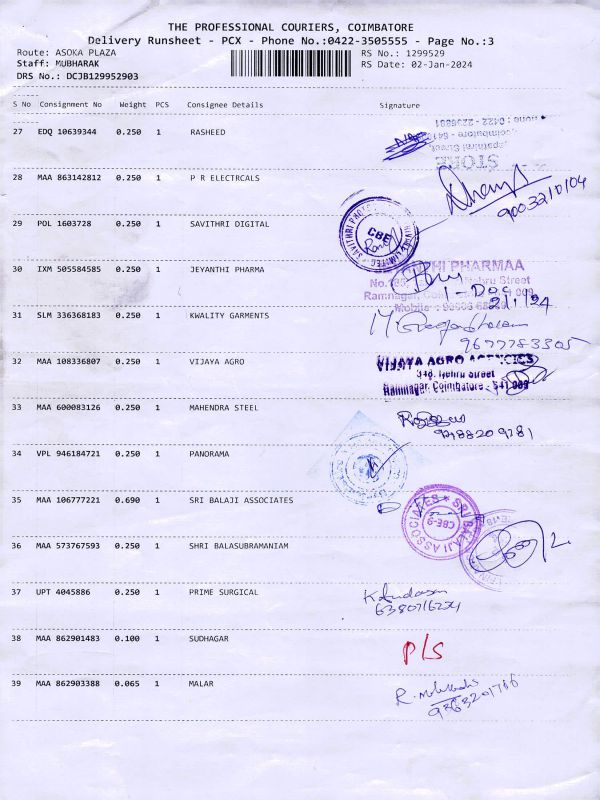 THE PROFESSIONAL COURIERS, COIMBATORE
Delivery Runsheet - PCX - Phone No.:0422-3505555 - Page No.:3
Route: ASOKA PLAZA RS No.: 1299529
Staff: MUBHARAK RS Date: 02-Jan-2024
DRS No.: DCJB129952903
S No Consignment No Weight PCS Consignee Details Signature
27 EDQ 10639344 0.250 1 RASHEED
STORE
28 MAA 863142812 0.250 1 P R ELECTRCALS
9003210104
29 POL 1603728 0.250 1 SAVITHRI DIGITAL
CBE
30 IXM 505584585 0.250 1 JEYANTHI PHARMA
PHARMAA
Nehru Street
Ramnagar,
Mobile :
1 - Doc
2/1/24
31 SLM 336368183 0.250 1 KWALITY GARMENTS
9677783305
32 MAA 108336807 0.250 1 VIJAYA AGRO
VIJAYA AGRO AGENCIES
348, Nehru Street
Ramnagar, Coimbatore - 641 009
33 MAA 600083126 0.250 1 MAHENDRA STEEL
34 VPL 946184721 0.250 1 PANORAMA
35 MAA 106777221 0.690 1 SRI BALAJI ASSOCIATES
SRI BALAJI ASSOCIATES
CBE-9
36 MAA 573767593 0.250 1 SHRI BALASUBRAMANIAM
37 UPT 4045886 0.250 1 PRIME SURGICAL
38 MAA 862901483 0.100 1 SUDHAGAR
P/S
39 MAA 862903388 0.065 1 MALAR